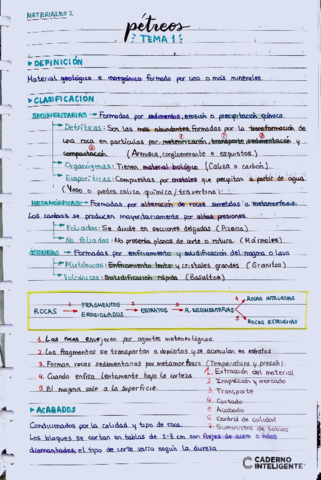 MATERIALES 2
pétreos
TEMA 1
DEFINICIÓN
Material geológico e inorgánico formado por uno o más minerales.
CLASIFICACIÓN
SEDIMENTARIAS → Formadas por sedimentos, erosión o precipitación química.
Detríticas: Son las más abundantes formadas por la transformación de
una roca en partículas por meteorización, transporte, sedimentación y
compactación (Arenisca, conglomerante o esquistos).
Organógenas: Tienen material biológico (Caliza o carbón).
Evaporíticas: Compuestas por cristales que precipitan a partir de agua
(Yeso o piedra caliza química/travertino)
METAMÓRFICAS → Formadas por alteración de rocas sometidas a metamorfosis.
Los cambios se producen mayoritariamente por altas presiones.
Foliadas: Se divide en secciones delgadas (Pizarra)
No foliadas: No presenta planos de corte o rotura. (Mármoles)
ÍGNEAS → Formadas por enfriamiento y solidificación del magma o lava
Plutónicas: Enfriamiento lento y cristales grandes (Granitos)
Volcánicas: Solidificación rápida (Basaltos)
ROCAS 1 FRAGMENTOS EROSIONADOS 2 ESTRATOS 3 R. SEDIMENTARIAS 4 ROCAS INTRUSIVAS
5 ROCAS EXTRUSIVAS
1. Las rocas envejecen por agentes meteorológicos.
2. Los fragmentos se transportan a depósitos y se acumulan en estratos.
3. Forman rocas sedimentarias por metamorfosis (Temperatura y presión).
4. Cuando enfría lentamente bajo la corteza
5. Al magma salir a la superficie.
1. Extracción del material
2. Inspección y
3. Transporte
4. Cortado
5. Acabado
6. Control de calidad
7. Suministro de tablas
ACABADOS
Condicionados por la calidad y tipo de roca.
Los bloques se cortan en tablas de 2-3 cm con flejes de acero o hilos
diamantados, el tipo de corte varía según la dureza
CADERNO
INTELIGENTE